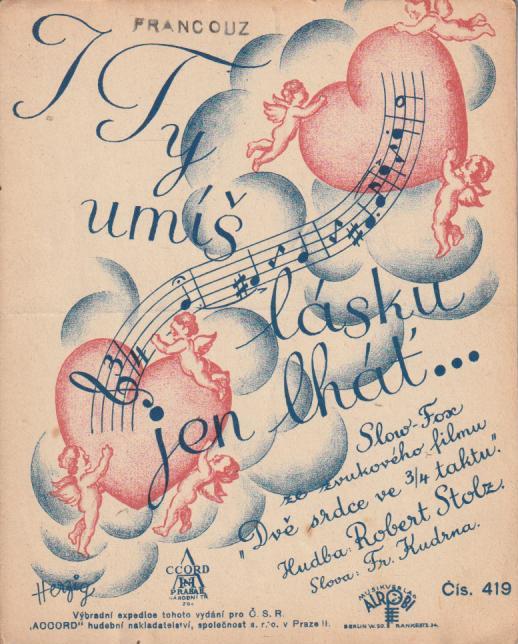 FRANCOUZ
I Ty
umíš
lásku
jen lháť...
3/4
Slow-Fox
ze zvukového filmu
"Dvě srdce ve 3/4 taktu".
Hudba: Robert Stolz.
Slova: Fr. Kudrna.
Herzig
ACCORD
PRAHA II
NÁRODNÍ TŘ.
MUSIKVERLAG
ALROBI
BERLIN W. 50. RANKESTR. 34.
Čís. 419
Výhradní expedice tohoto vydání pro Č. S. R.
„ACCORD" hudební nakladatelství, společnost s. r. o. v Praze II.